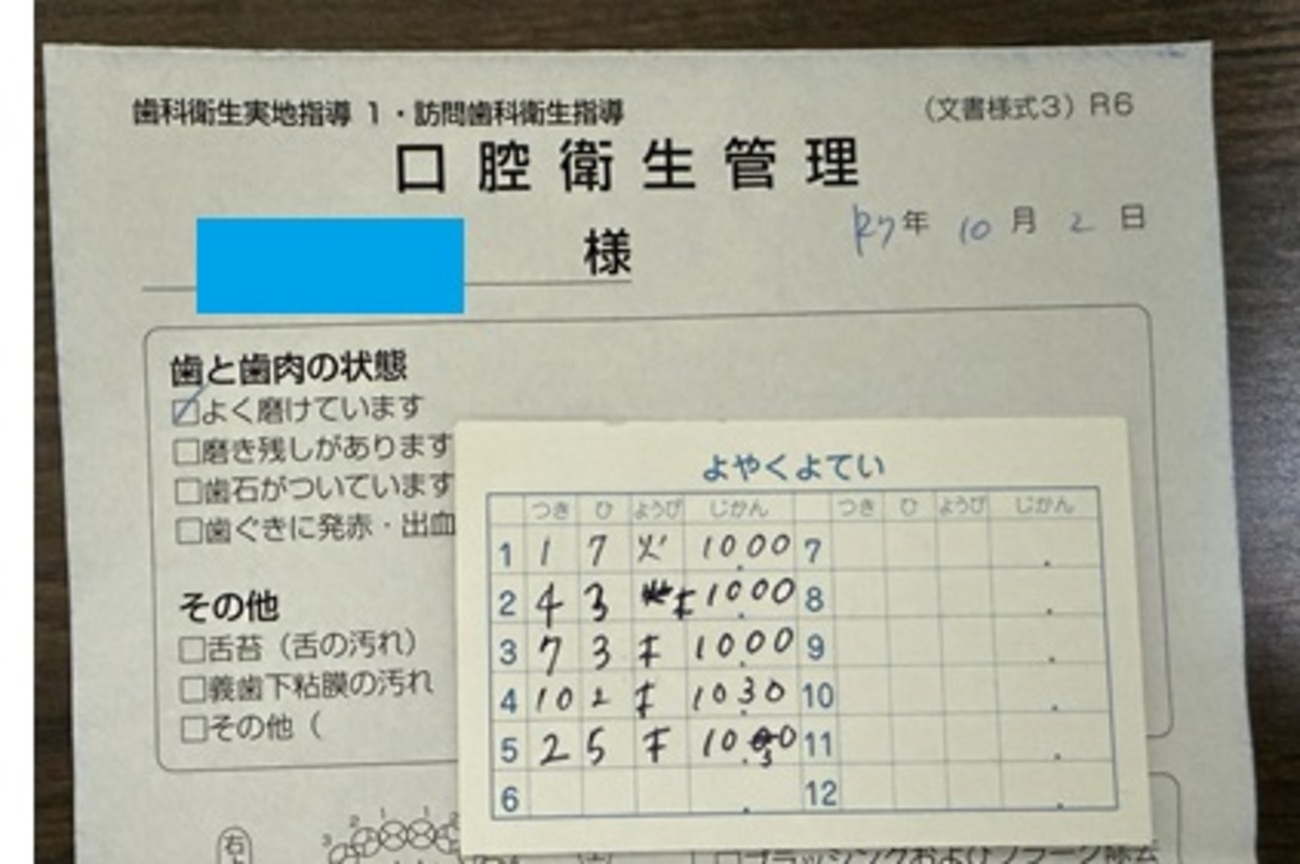 歯科衛生実地指導 1・訪問歯科衛生指導
(文書様式3) R6
口腔衛生管理
R7年 10月 2日
様
歯と歯肉の状態
☑よく磨けています
□磨き残しがあります
□歯石がついています
□歯ぐきに発赤・出血
その他
□舌苔(舌の汚れ)
□義歯下粘膜の汚れ
□その他(
よやくよてい
つき ひ ようび じかん つき ひ ようび じかん
1 1 7 火 10.00 7 .
2 4 3 木 10.00 8 .
3 7 3 木 10.00 9 .
4 10 2 木 10.30 10 .
5 2 5 木 10.30 11 .
6 . 12 .
右
3 2 1 1 2
□ブラッシングおよびプラーク除去